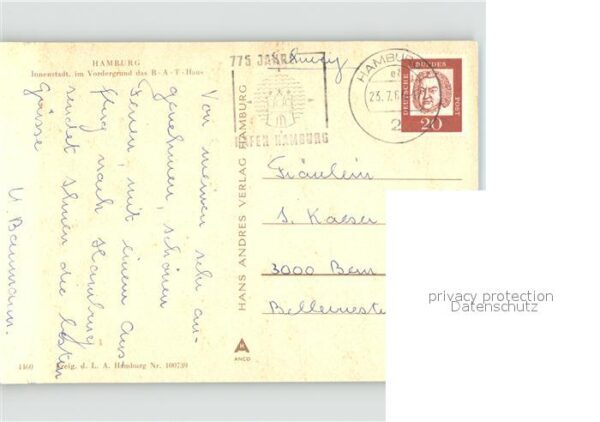 HAMBURG
Innenstadt, im Vordergrund das B·A·T-Haus
Von meinen sehr an-
genehmen, schönen
Ferien, mit einem Aus-
flug nach Hamburg
sendet Ihnen die besten
Grüsse
U. Baumann.
1
4460 Freig. d. L. A. Hamburg Nr. 100739
HANS ANDRES VERLAG HAMBURG
ANCO
775 JAHRE
HAFEN HAMBURG
HAMBURG
25.7.6
2
DEUTSCHE
BUNDES
POST
20
Fräulein
S. Kaeser
3000 Bern
privacy protection
Datenschutz